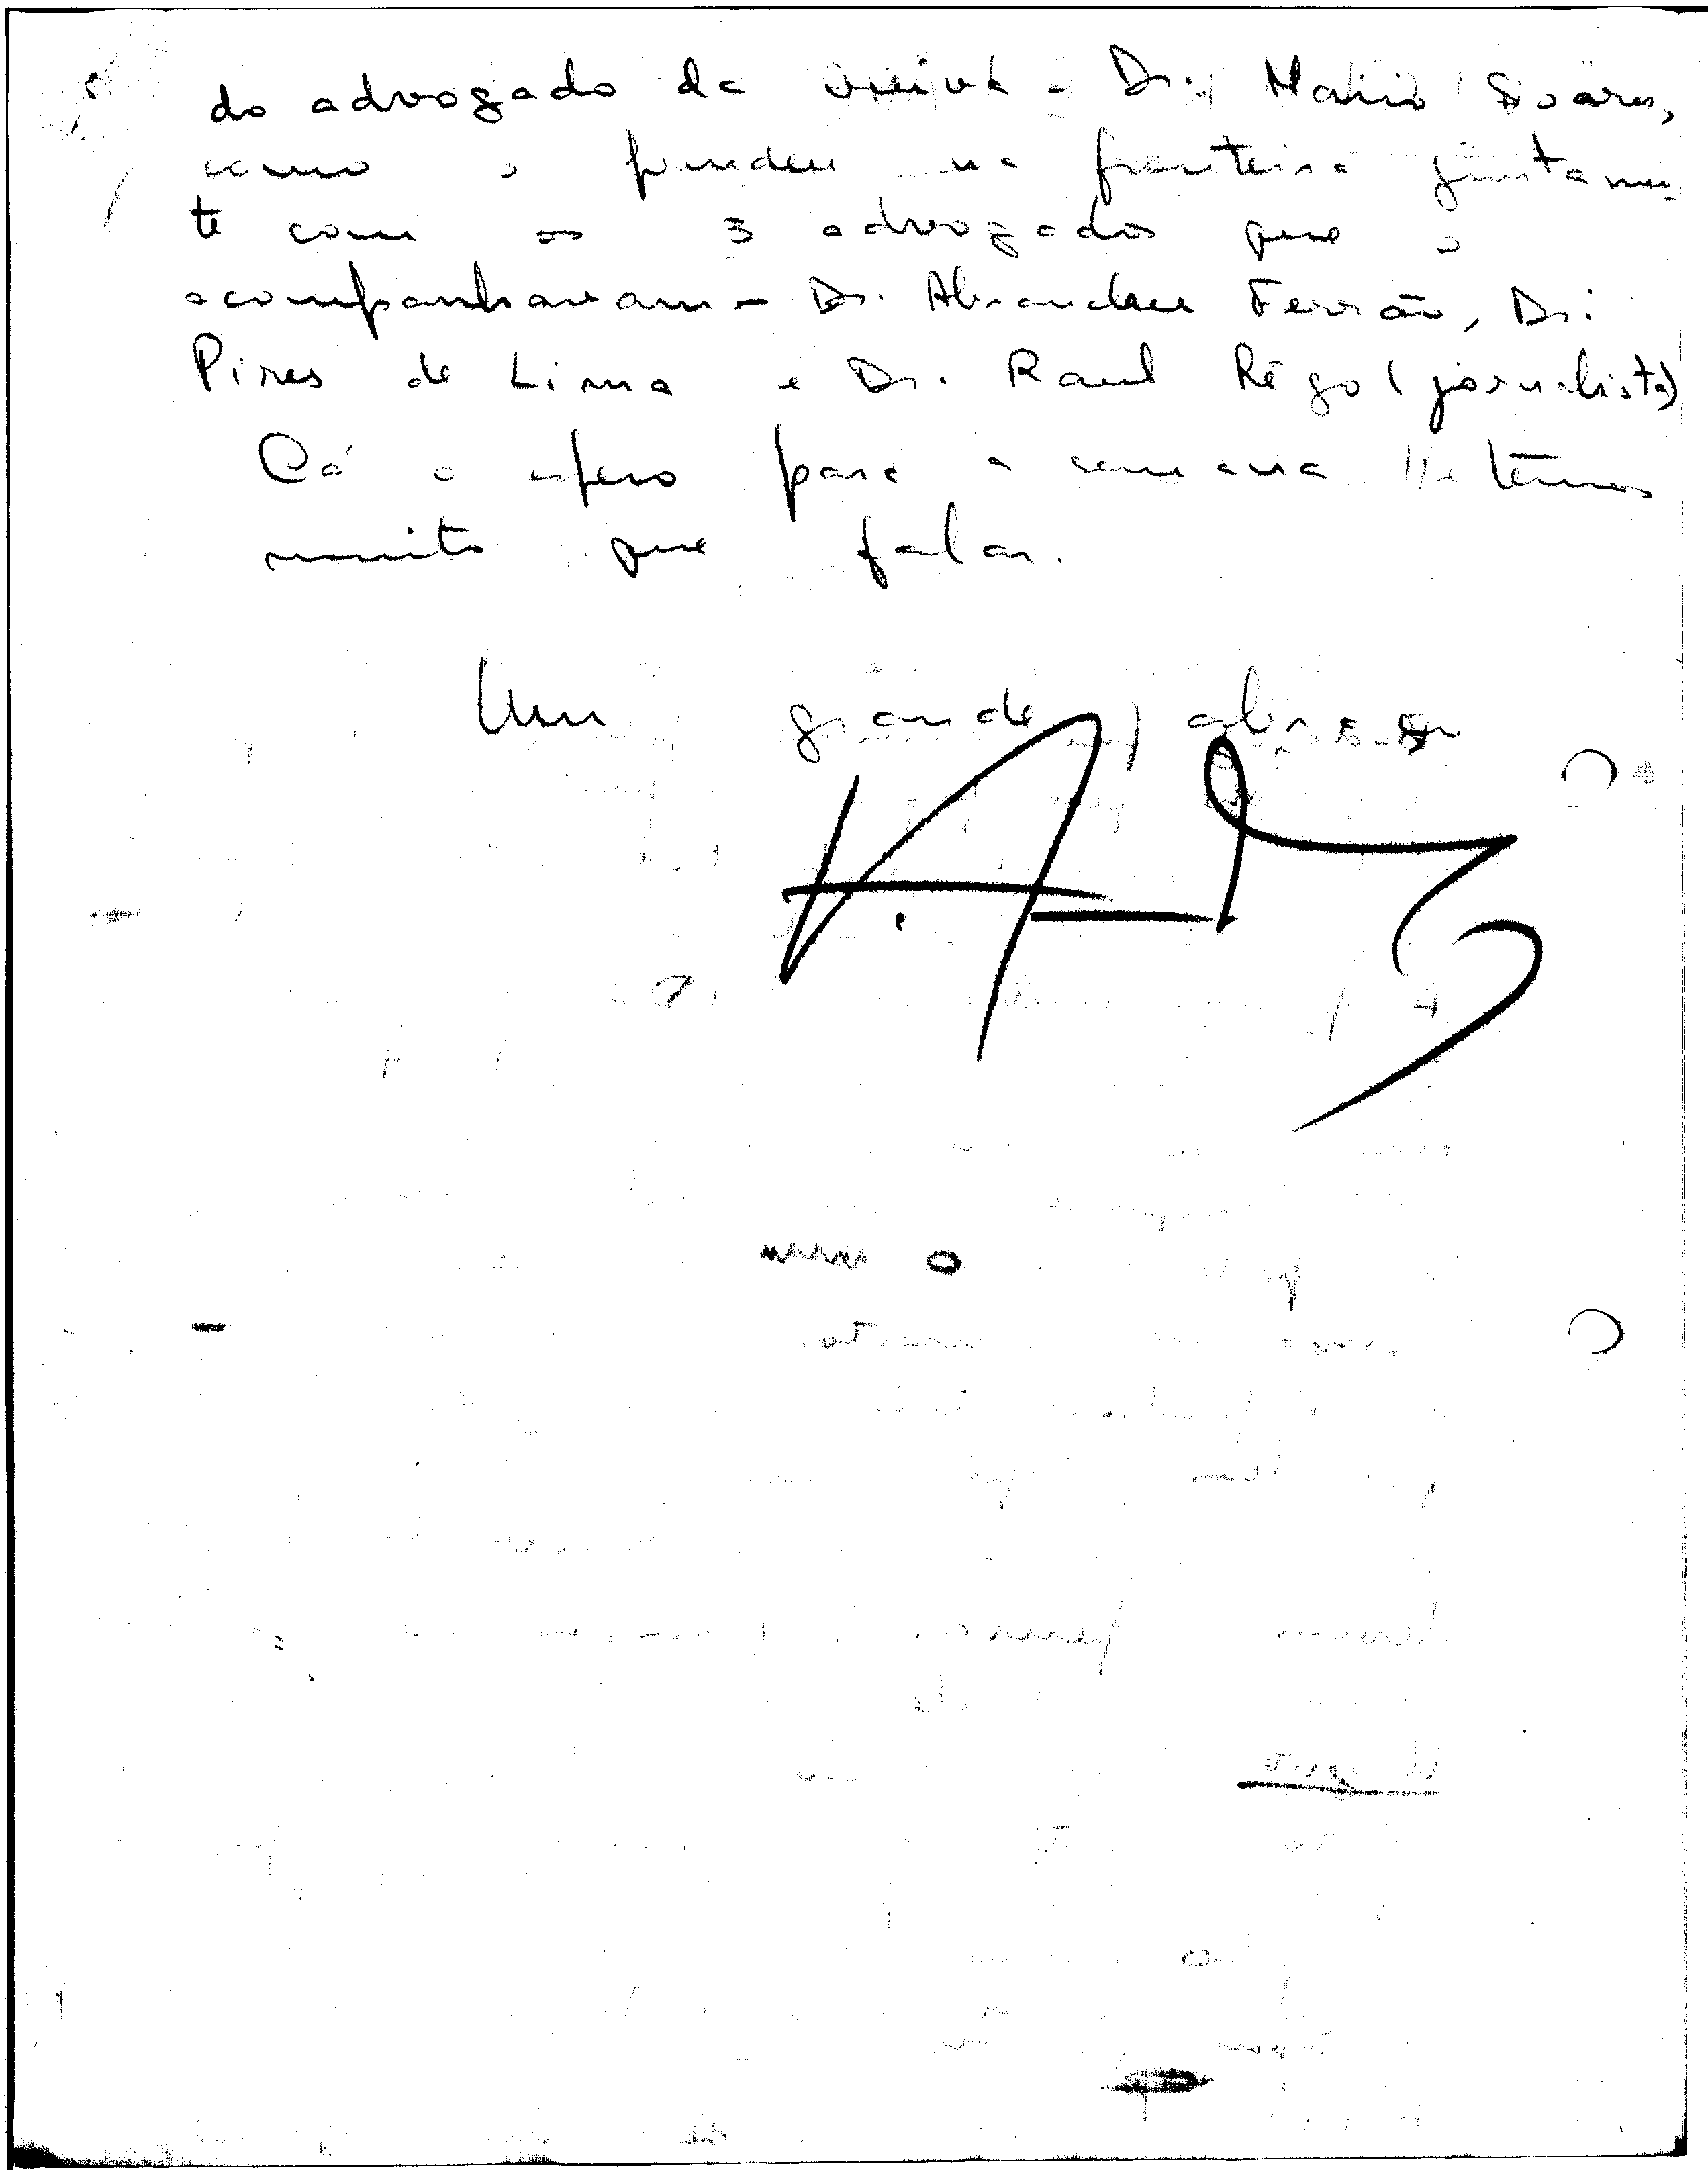 do advogado da viuva - Dr. Mario Soares,
como o prendeu na fronteira juntamen-
te com os 3 advogados que o
acompanhavam - Dr. Abranches Ferrão, Dr.
Pires de Lima e Dr. Raul Rêgo (jornalista)
Cá o espero para a semana temos
muito que falar.
Um grande abraço